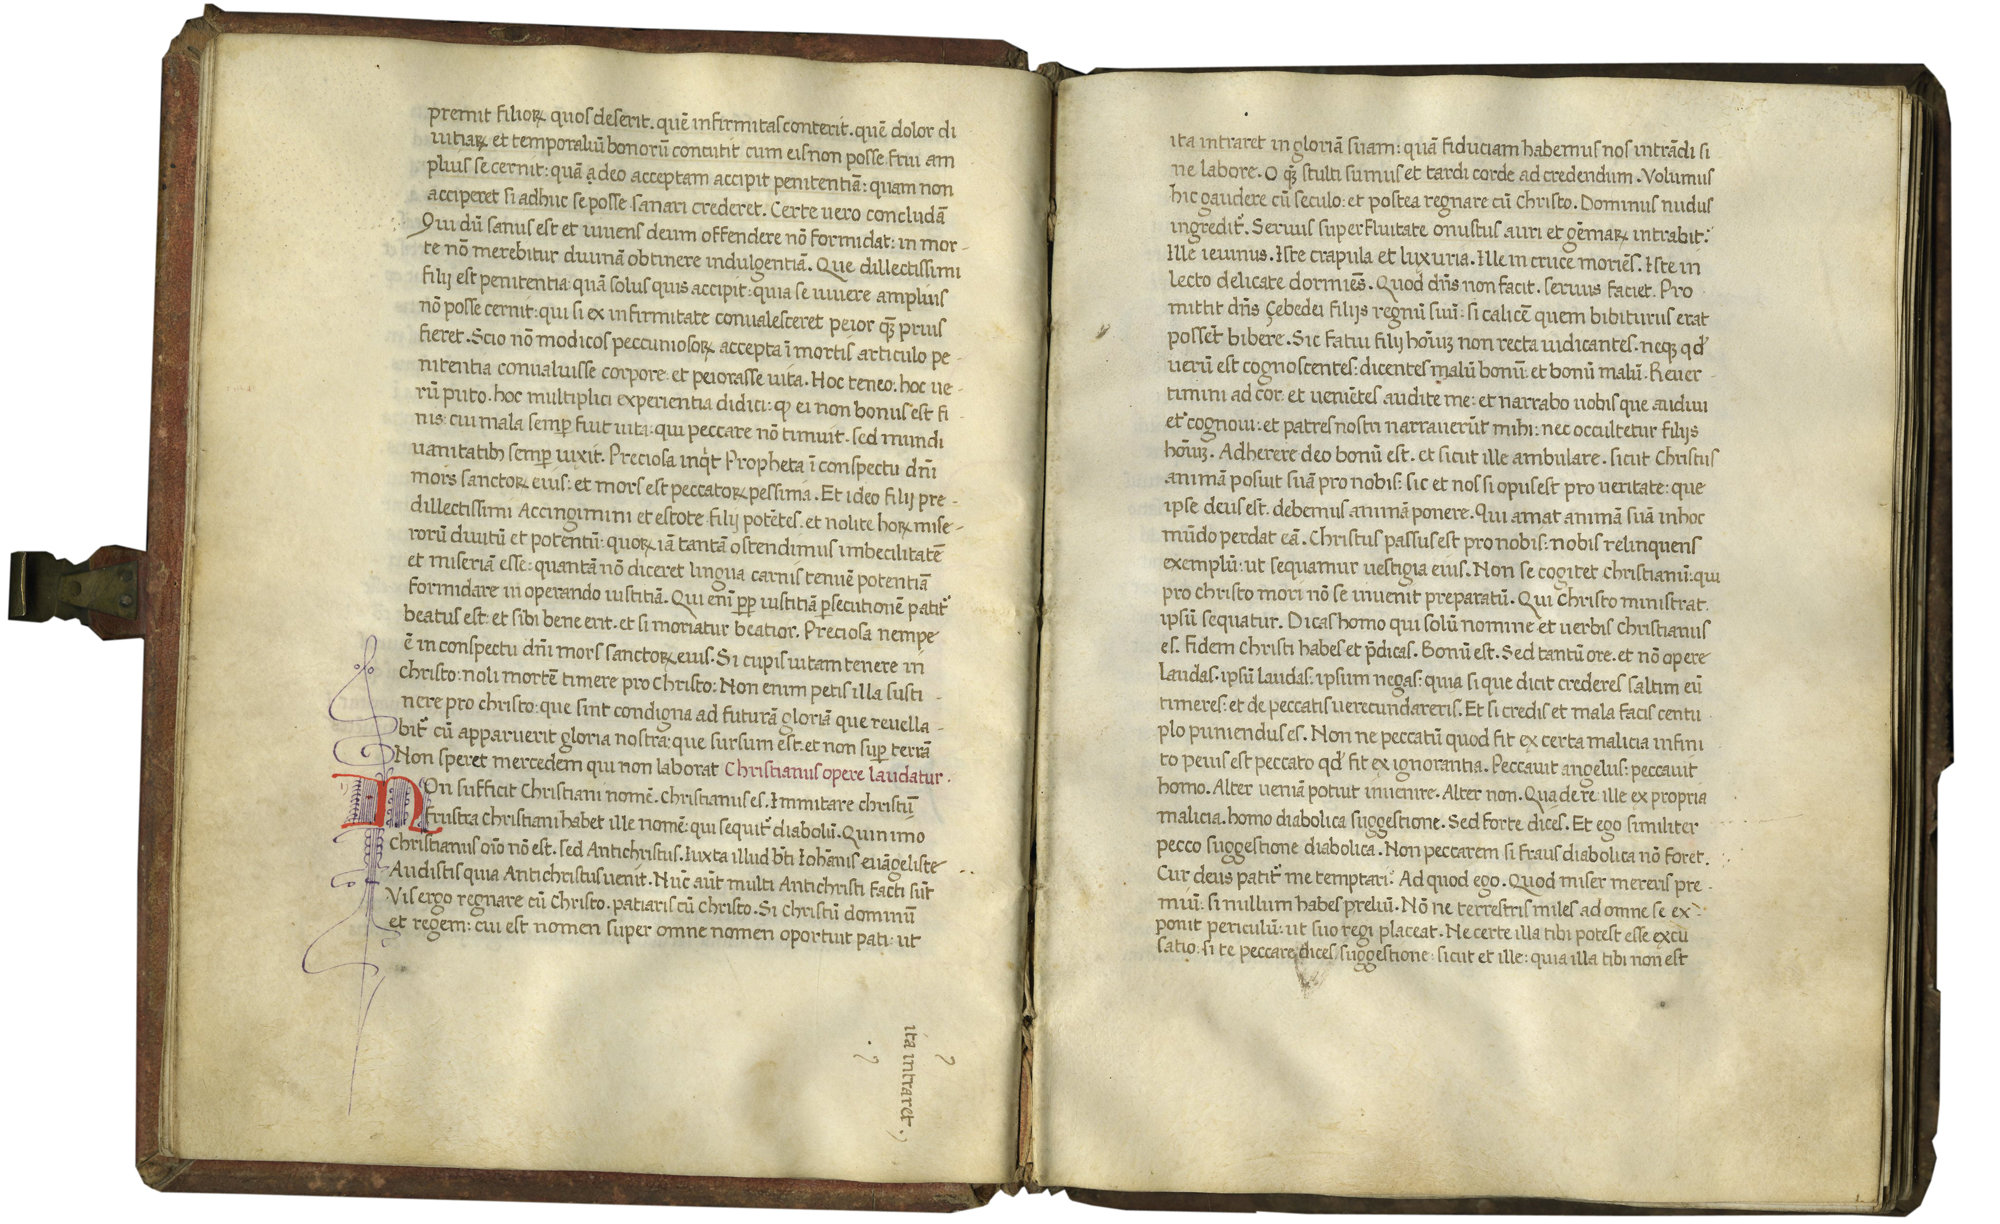 premit filioꝝ quos deserit. quē infirmitas conterit. quē dolor di
uitiaꝝ et temporaliū bonorū concutit cum eis non posse frui am
plius se cernit: quā adeo acceptam accipit penitentiā: quam non
acciperet si adhuc se posse sanari crederet. Certe uero concludā
Qui dū sanus est et uiuens deum offendere nō formidat: in mor-
te nō merebitur diuinā obtinere indulgentiā. Que dillectissimi
filij est penitentia: quā solus quis accipit: quia se uiuere amplius
nō posse cernit: qui si ex infirmitate conualesceret peior qꝫ prius
fieret. Scio nō modicos peccuniosoꝝ accepta ī mortis articulo pe-
nitentia conualuisse corpore: et peiorasse uita. Hoc teneo: hoc ue-
rū puto. hoc multiplici experientia didici: ꝙ ei non bonus est fi
nis: cui mala semꝑ fuit uita: qui peccare nō timuit. sed mundi
uanitatibꝫ semꝑ uixit. Preciosa inq̇t Propheta ī conspectu dn̄i
mors sanctoꝝ eius: et mors est peccatoꝝ pessima. Et ideo filij pre-
dillectissimi Accingimini et estote filij potētes. et nolite hoꝝ mise-
rorū diuitū et potentū: quoꝝ iā tantā ostendimus imbecilitatē
et miseriā esse: quantā nō diceret lingua carnis tenuē potentiā
formidare in operando iustitiā. Qui eni ꝓꝑ iustitiā ꝑsecutionē patit᷑
beatus est: et sibi bene erit. et si moriatur beatior. Preciosa nempe
ē in conspectu dn̄i mors sanctoꝝ eius. Si cupis uitam tenere in
christo: noli mortē timere pro christo: Non enim petis illa susti-
nere pro christo: que sint condigna ad futurā gloriā que reuella-
bit᷑ cū apparuerit gloria nostra: que sursum est. et non suꝑ terrā
Non speret mercedem qui non laborat Christianus opere laudatur.
NOn sufficit Christiani nomē. christianus es. Immitare christū
Frustra christiani habet ille nomē: qui sequit᷑ diabolū. Quin imo
christianus oīo nō est. sed Antichristus. Iuxta illud bt̄i Iohānis euāgeliste
Audistis quia Antichristus uenit. Nūc aūt multi Antichristi facti sūt
Vis ergo regnare cū christo. patiaris cū christo. Si christū dominū
et regem: cui est nomen super omne nomen oportuit pati: ut
ita intraret.
ita intraret in gloriā suam: quā fiduciam habemus nos intrādi si
ne labore. O qꝫ stulti sumus et tardi corde ad credendum. Volumus
hic gaudere cū seculo: et postea regnare cū christo. Dominus nudus
ingredit᷑. Seruus superfluitate onustus auri et gēmaꝝ intrabit:
Ille ieiunus. Iste crapula et luxuria. Ille in cruce moriēs. Iste in
lecto delicate dormiēs. Quod dn̄s non facit. seruus faciet. Pro
mittit dn̄s Çebedei filijs regnū suū: si calicē quem bibiturus erat
posset bibere. Sic fatui filij hoīuꝫ non recta iudicantes. neqꝫ qd̓
uerū est cognoscentes: dicentes malū bonū: et bonū malū. Reuer
timini ad cor. et ueniētes audite me: et narrabo uobis que audiui
et cognoui: et patres nostri narrauerūt mihi: nec occultetur filijs
hoīuꝫ. Adherere deo bonū est. et sicut ille ambulare. sicut Christus
animā posuit suā pro nobis: sic et nos si opus est pro ueritate: que
ipse deus est. debemus animā ponere. Qui amat animā suā in hoc
mūdo perdat eā. Christus passus est pro nobis: nobis relinquens
exemplū: ut sequamur uestigia eius. Non se cogitet christianū: qui
pro christo mori nō se inuenit preparatū. Qui christo ministrat.
ipsū sequatur. Dicas homo qui solū nomine et uerbis christianus
es. Fidem christi habes et p̄dicas. Bonū est. Sed tantū ore. et nō opere
laudas. ipsū laudas: ipsum negas: quia si que dicit crederes saltim eū
timeres: et de peccatis uerecundareris. Et si credis et mala facis centu
plo puniendus es. Non ne peccatū quod fit ex certa malicia infini
to peius est peccato qd̓ fit ex ignorantia. Peccauit angelus: peccauit
homo. Alter ueniā potuit inuenire. Alter non. Qua de re: ille ex propria
malicia. homo diabolica suggestione. Sed forte dices. Et ego similiter
pecco suggestione diabolica. Non peccarem si fraus diabolica nō foret.
Cur deus patit᷑ me temptari: Ad quod ego. Quod miser mereris pre-
miū: si nullum habes preliū. Nō ne terrestris miles ad omne se ex-
ponit periculū: ut suo regi placeat. Ne certe illa tibi potest esse excu
satio: si te peccare dices suggestione: sicut et ille: quia illa tibi non est